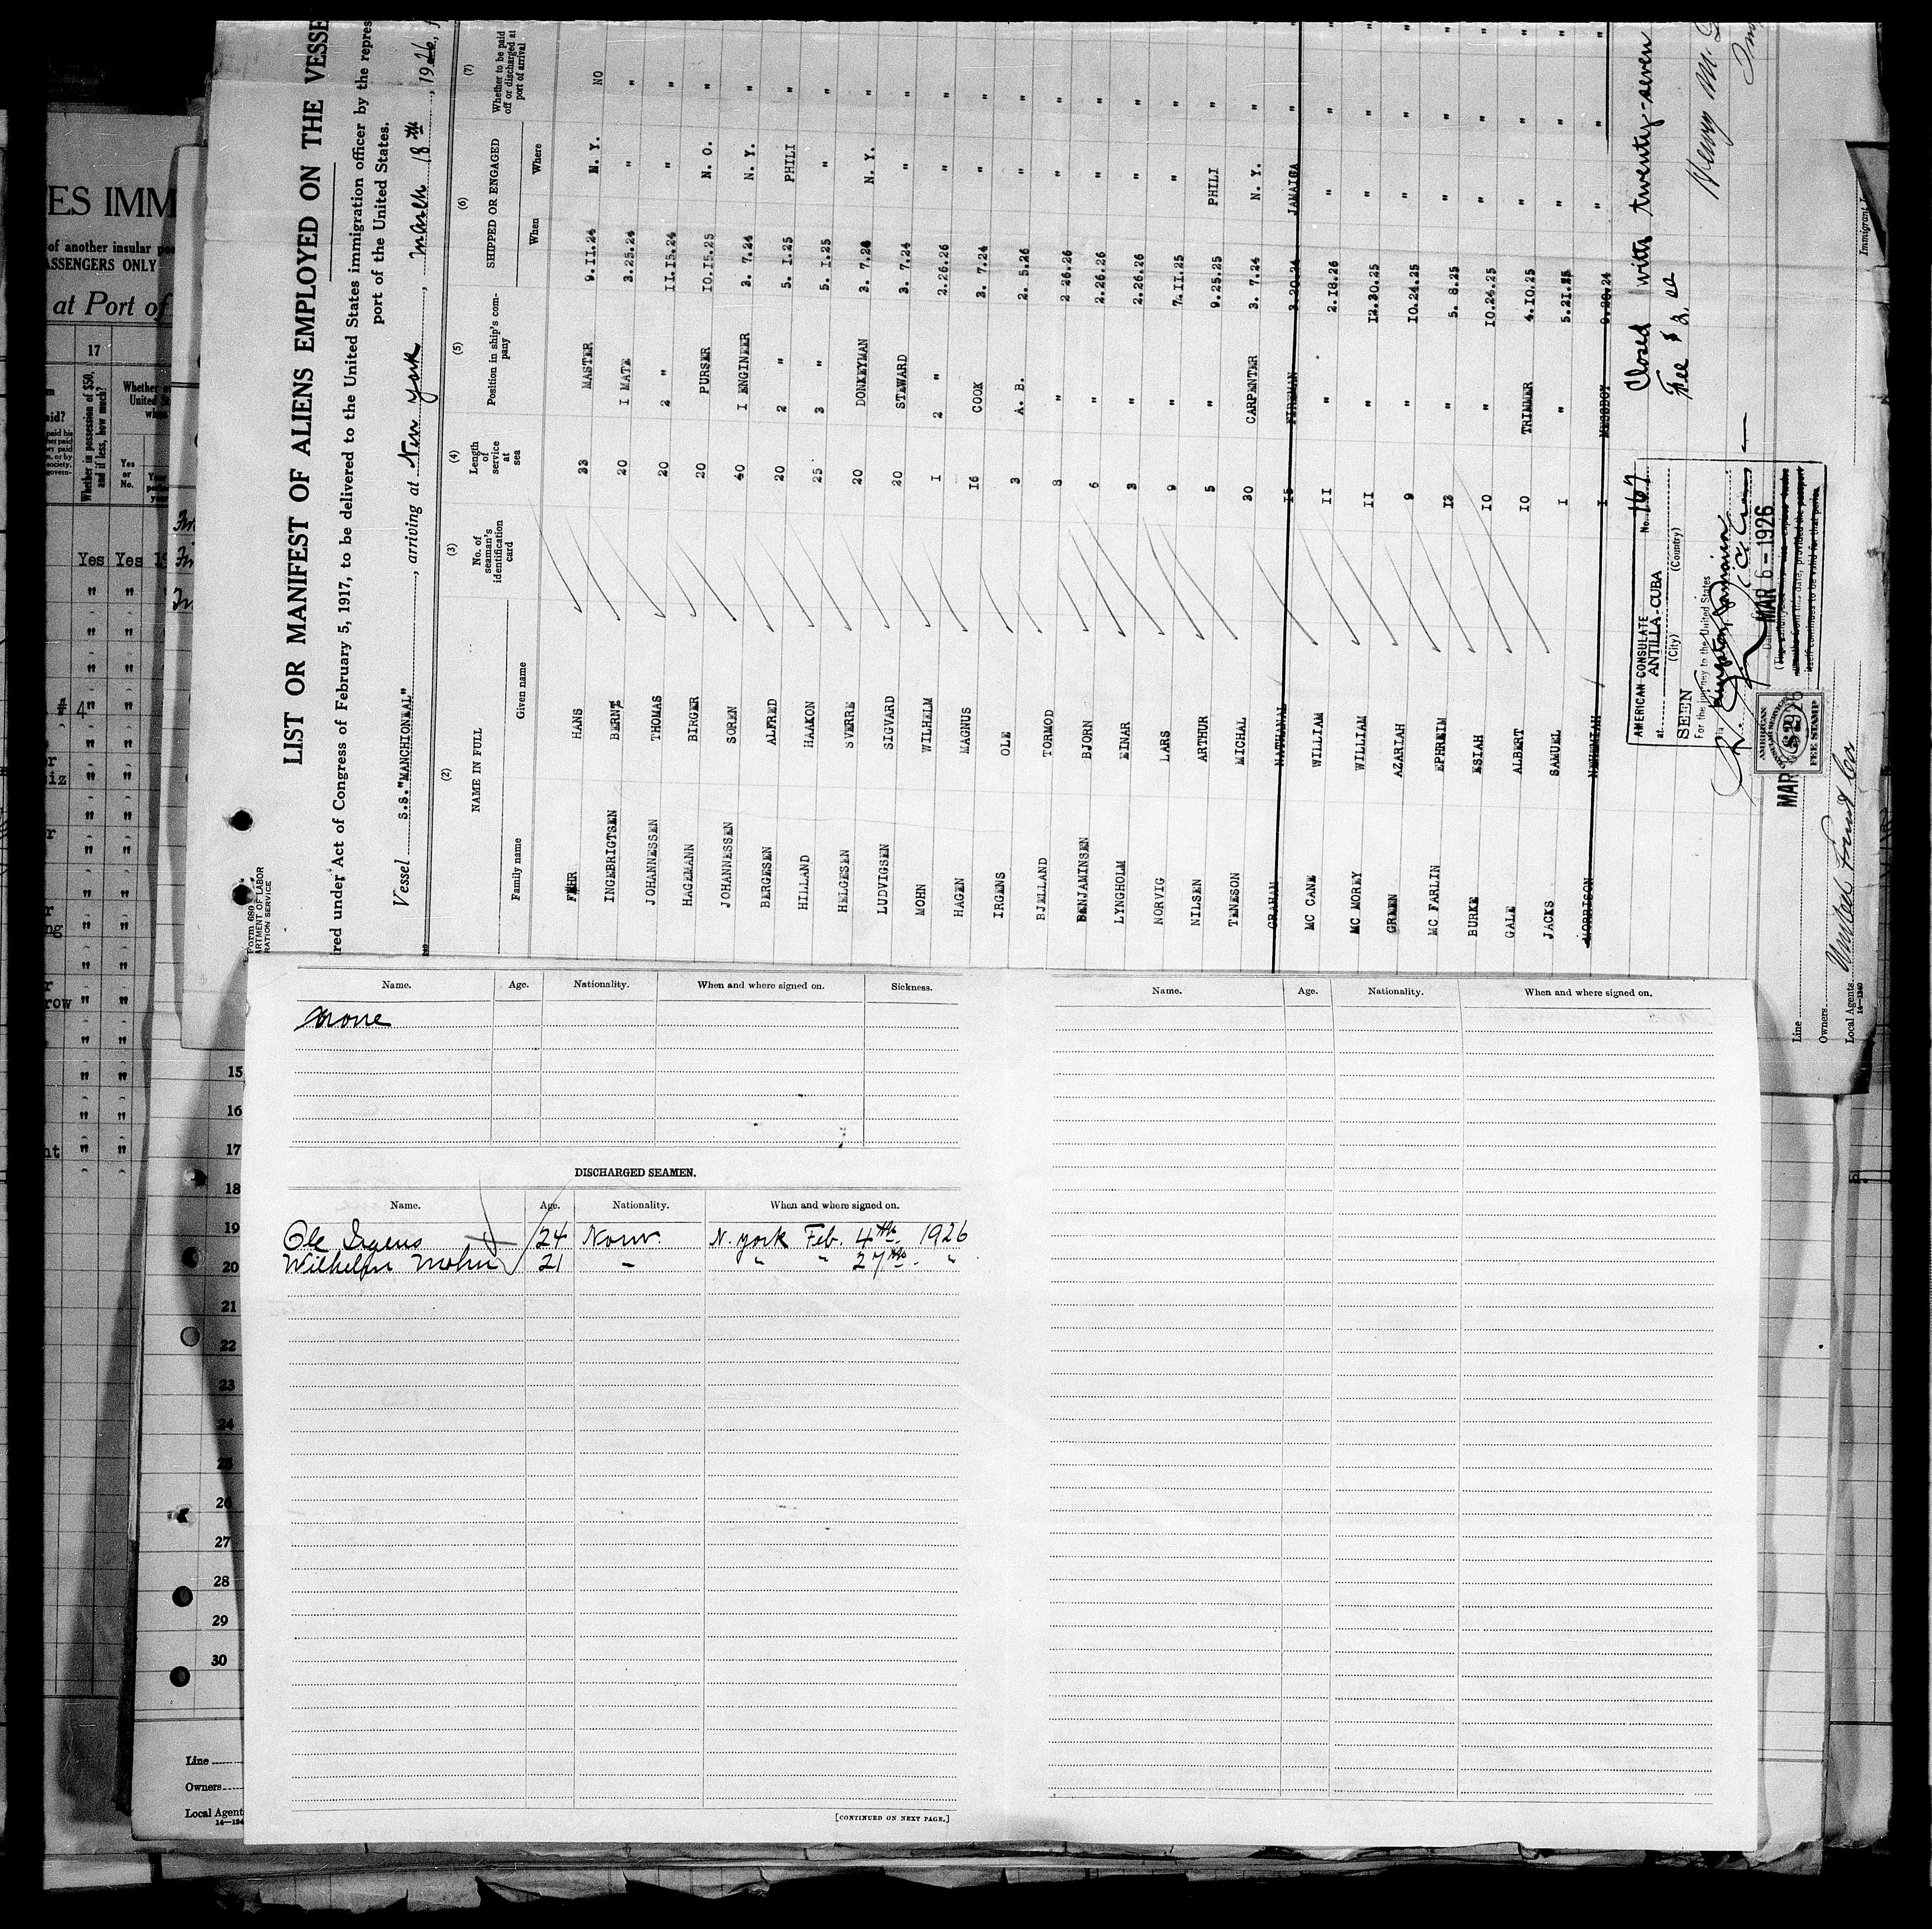 LIST OR MANIFEST OF ALIENS EMPLOYED ON THE VESSE
ired under Act of Congress of February 5, 1917, to be delivered to the United States immigration officer by the repres
port of the United States.
Vessel S.S. "MANCHIONEAL", arriving at New York, March 18th, 1926,
(2) (3) (4) (5) (6) (7)
NAME IN FULL No. of seaman's identification card Length of service at sea Position in ship's company SHIPPED OR ENGAGED Whether to be paid off or discharged at port of arrival
Family name Given name When Where
FEHR HANS 33 MASTER 9.11.24 N. Y. NO
INGEBRIGTSEN BERNT 20 I MATE 3.25.24 " "
JOHANNESSEN THOMAS 20 2 " 11.15.24 " "
HAGEMANN BIRGER 20 PURSER 10.15.25 N. O. "
JOHANNESSEN SOREN 40 I ENGINEER 3. 7.24 N. Y. "
BERGESEN ALFRED 20 2 " 5. 1.25 PHILI "
HILLAND HAAKON 25 3 " 5. 1.25 " "
HELGESEN SVERRE 20 DONKEYMAN 3. 7.24 N. Y. "
LUDVIGSEN SIGVARD 20 STEWARD 3. 7.24 " "
MOHN WILHELM I 2 " 2.26.26 " "
HAGEN MAGNUS 16 COOK 3. 7.24 " "
IRGENS OLE 3 A. B. 2. 5.26 " "
BJELLAND TORMOD 8 " 2 26.26 " "
BENJAMINSEN BJORN 6 " 2.26.26 " "
LYNGHOLM EINAR 3 " 2.26.26 " "
NORVIG LARS 9 " 7.11.25 " "
NILSEN ARTHUR 5 " 9.25.25 PHILI "
TENESON MICHAL 30 CARPENTER 3. 7.24 N. Y. "
GRAHAM NATHANAL 15 FIREMAN 3.20.24 JAMAIGA "
MC CANE WILLIAM 11 " 2.18.26 " "
MC MOREY WILLIAM 11 " 12.30.25 " "
GREEN AZARIAH 9 " 10.24.25 " "
MC FARLIN EPHREIM 13 " 5. 8.25 " "
BURKE ESIAH 10 " 10.24.25 " "
GALE ALBERT 10 TRIMMER 4.10.25 " "
JACKS SAMUEL I " 5.21.25 " "
MORRISON NEHEMIAH I MESSBOY 9.20.24 " "
Closed with twenty-seven
Fee $ 2.00
Henry M.
AMERICAN CONSULATE No. 167
at ANTILLA - CUBA
(City) (Country)
SEEN
For the journey to the United States
via Kingston, Jamaica
MAR 6 - 1926
AMERICAN
FEE STAMP
Line
Owners
Local Agents United Fruit Co
14—1240
Immigrant
Form 680
ARTMENT OF LABOR
RATION SERVICE
Name. Age. Nationality. When and where signed on. Sickness.
None
DISCHARGED SEAMEN.
Name. Age. Nationality. When and where signed on.
Ole Irgens 24 Norw. N. York Feb. 4th 1926
Wilhelm Mohn 21 - " " 27th "
[CONTINUED ON NEXT PAGE.]
Name. Age. Nationality. When and where signed on.
TES IMM
of another insular
ASSENGERS ONLY
at Port of
17
Whether in possession of $50, and if less, how much?
Yes or No.
Yes Yes
# 4
15
16
17
18
19
20
21
22
23
24
25
26
27
28
29
30
Line
Owners
Local Agent